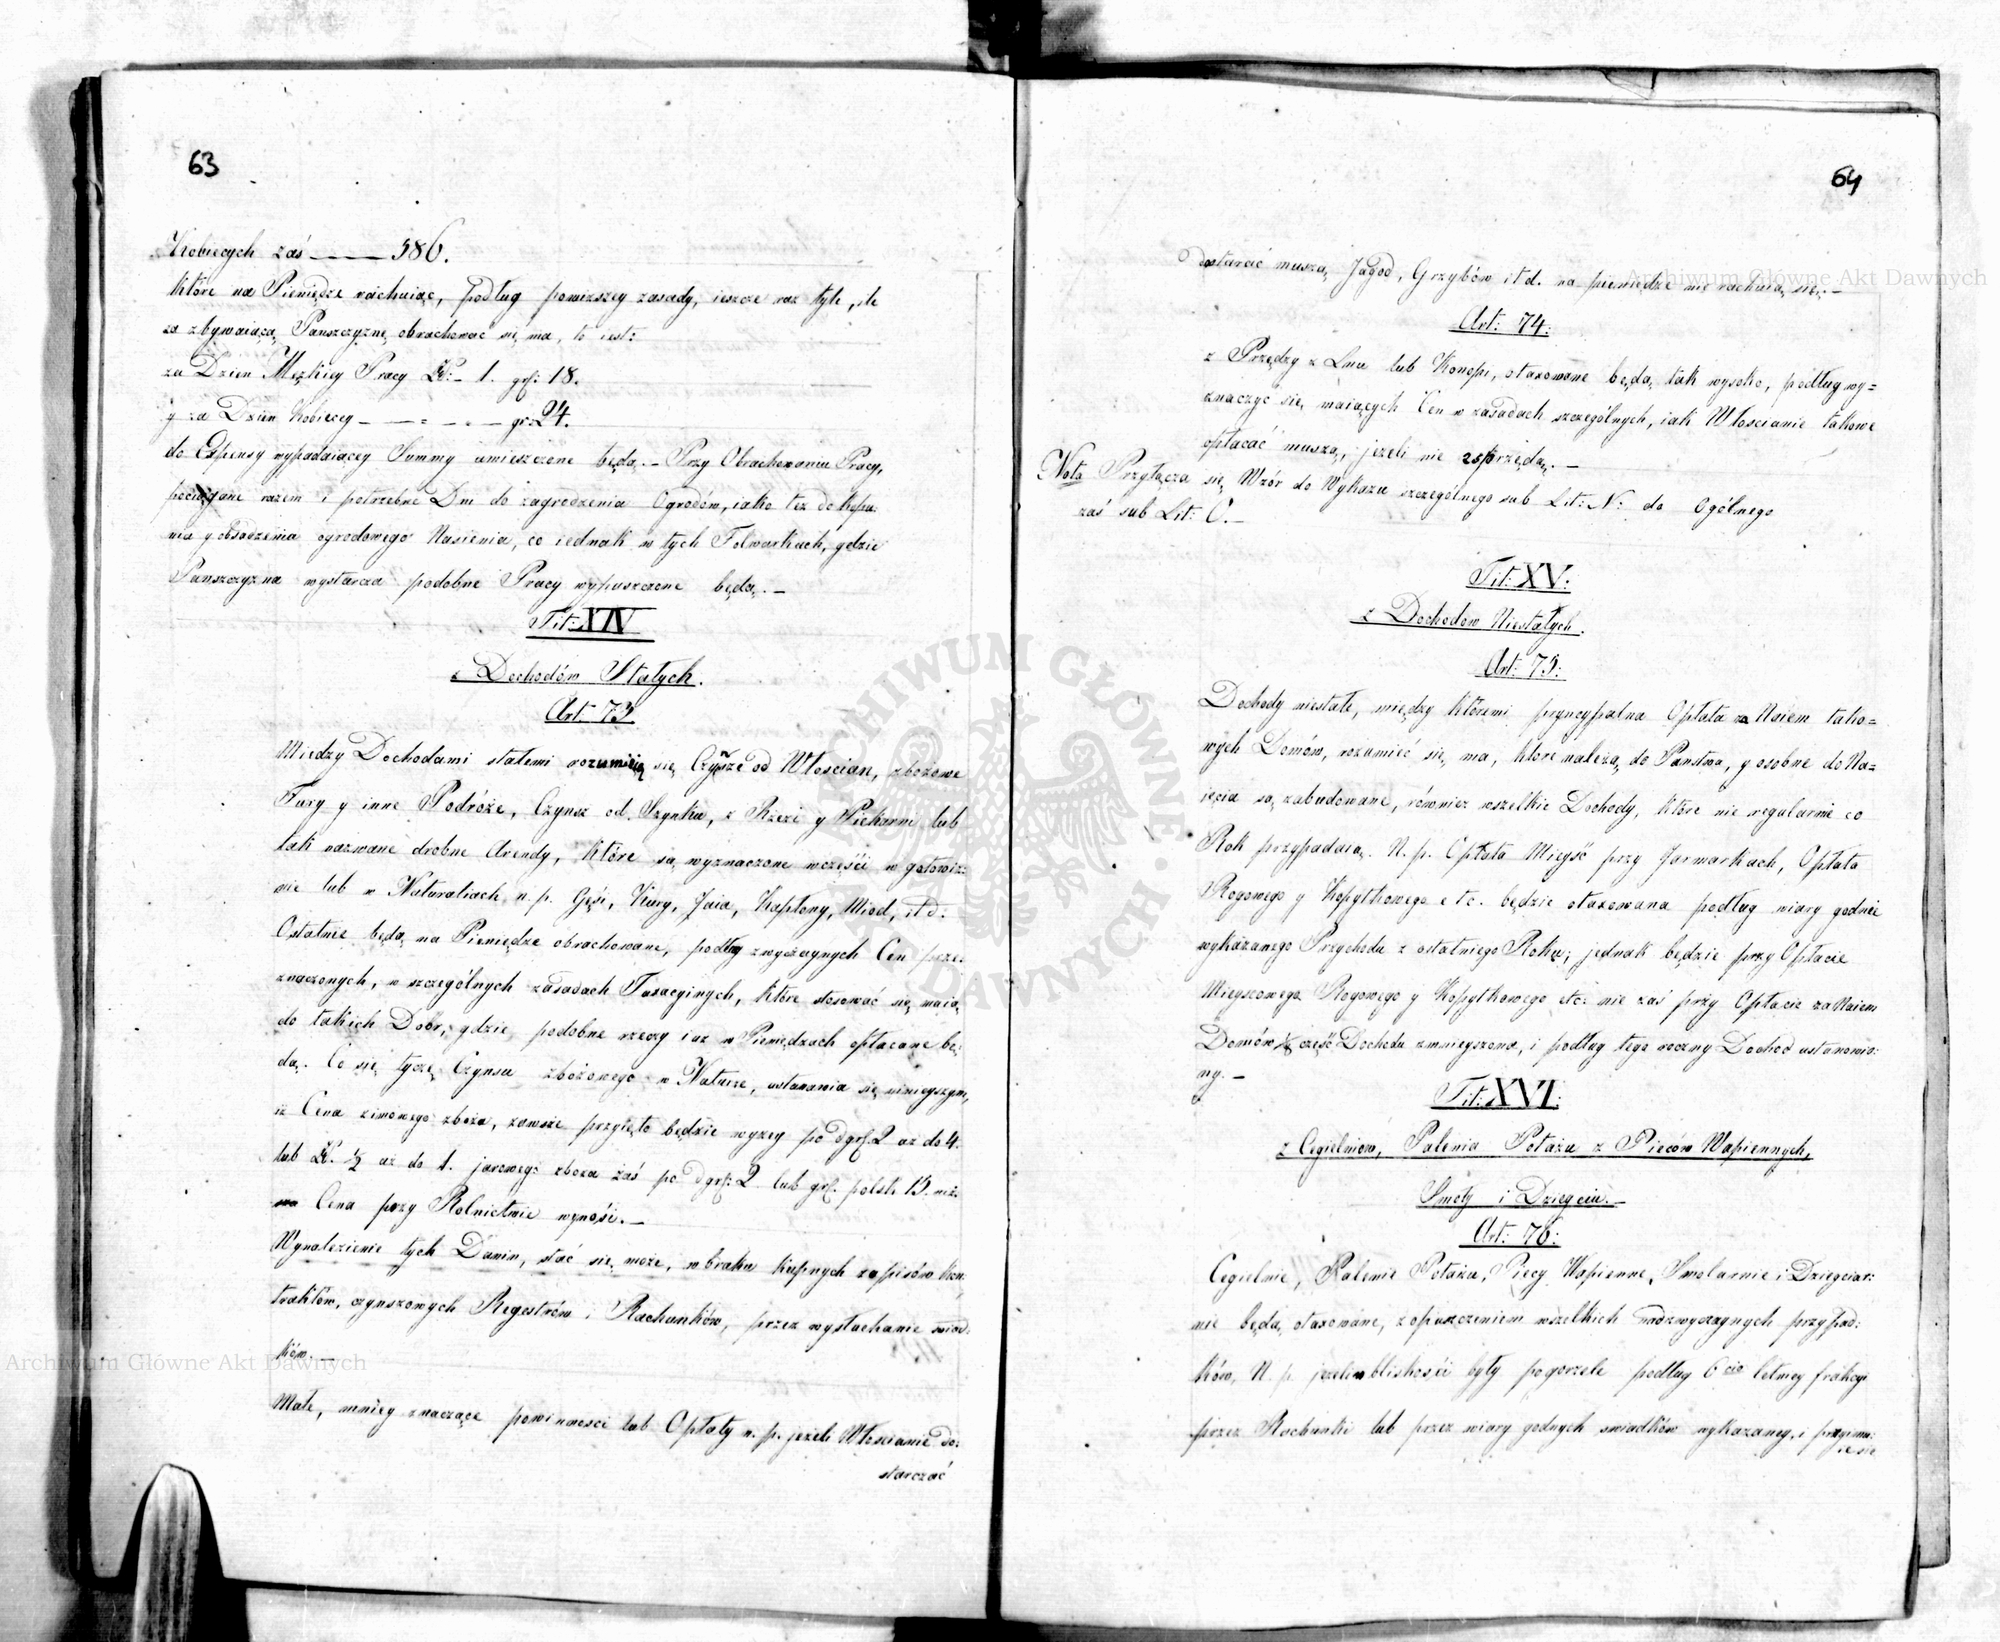 63
Kobiecych zaś ——— 586.
które na Pieniędze rachuiąc, podług powyższey zasady, ieszcze raz tyle, ile
za zbywaiącą Panszczyznę obrachować się ma, to iest:
za Dzien Męzkiey Pracy Zł: 1. gr: 18.
y za Dzien Kobiecey — — — — gr: 24.
do Expensy wypadaiącey Summy umieszczone będą. — Przy Obrachowaniu Pracy,
pociągane razem i potrzebne Dni do zagrodzenia Ogrodów, iako też do kopa-
nia y obsadzenia ogrodowego Nasienia, co iednak w tych Folwarkach, gdzie
Panszczyzna wystarcza podobne Pracy wypuszczone będą. —
Tit: XIV
z Dochodów Stałych.
Art: 73.
Miedzy Dochodami stałemi rozumieią się Czynsze od Włoscian, zbożowe
Fury y inne Podróże, Czynsz od Szynku, z Rzezi y Piekarni lub
tak nazwane drobne Arendy, które są wyznaczone wczęści w gotowiz:
nie lub w Naturaliach, n. p. Gęsi, Kury, Jaia, Kapłony, Miod, it d:
Ostatnie będą na Pieniędze obrachowane, podług zwyczaynych Cen prze:
znaczonych, w szczególnych zasadach Taxacyinych, które stosować się maią,
do takich Dobr, gdzie podobne rzeczy iuz w Pieniędzach opłacane bę:
dą. Co się tycze Czynsu zbożowego w Naturze, ustanawia się ninieyszym,
iż Cena zimowego zboża, zawsze przyięto będzie wyzey po dgr. 2 aż do 4.
lub Zł. ½ aż do 1. jarowego zboza zaś po dgr: 2 lub gr. polsk 15. niż:
Cena przy Rolnictwie wynośi. —
Wynalezienie tych Danin, stać się może, w braku kupnych zapisów kon:
traktów, czynszowych Regestrów i Rachunków, przez wysłuchanie świad:
ków. —
Małe, mniey znaczące powinnosci lub Opłaty n. p. jeżeli Włoscianie do:
starczać
64
dostarcać muszą, Jagod, Grzybów itd. na pieniędze nie rachuią się. —
Art: 74.
z Przędzy z Lnu lub Konopi, otaxowane będą tak wysoko, podług wy=
znaczyc się maiących Cen w zasadach szczególnych, iak Włoscianie takowe
opłacać muszą, jeżeli nie zsprzędą. —
Nota Przyłącza się Wzór do Wykazu szczególnego sub Lit: N: do Ogólnego
zaś sub Lit: O. —
Tit: XV:
z Dochodow Niestałych.
Art: 75:
Dochody niestałe, między któremi pryncypalna Opłata za Naiem tako=
wych Domów, rozumieć się ma, ktore należą do Panstwa, y osobne do Na=
jęcia są zabudowane, również wszelkie Dochody, które nie regularnie co
Rok przypadaią. N. p. Opłata Mieyść przy Jarmarkach, Opłata
Rogowego y Kopytkowego etc. będzie otaxowana podług wiary godnie
wykazanego Przychodu z ostatniego Roku; jednak będzie przy Opłacie
Mieyscowego Rogowego y Kopytkowego etc: nie zaś przy Opłacie za Naiem
Domów ⅙ część Dochodu zmnieyszona, i podług tego roczny Dochod ustanowio:
ny. —
Tit: XVI:
z Cegielniow, Palenia Potażu z Pieców Wapiennych,
Smoły i Dziegciu. —
Art: 76:
Cegielnie, Palenie Potażu, Piecy Wapienne, Smolarnie i Dziegciar:
nie będą otaxowane, z opuszczeniem wszelkich nadzwyczaynych przypad:
ków, N. p. jezeli w bliskości były pogorzele podług 6cio letney frakcyi
przez Rachunki lub przez wiary godnych swiadków wykazaney, i przyimu:
ie się
Archiwum Główne Akt Dawnych
Archiwum Główne Akt Dawnych
ARCHIWUM GŁÓWNE · AKT DAWNYCH ·